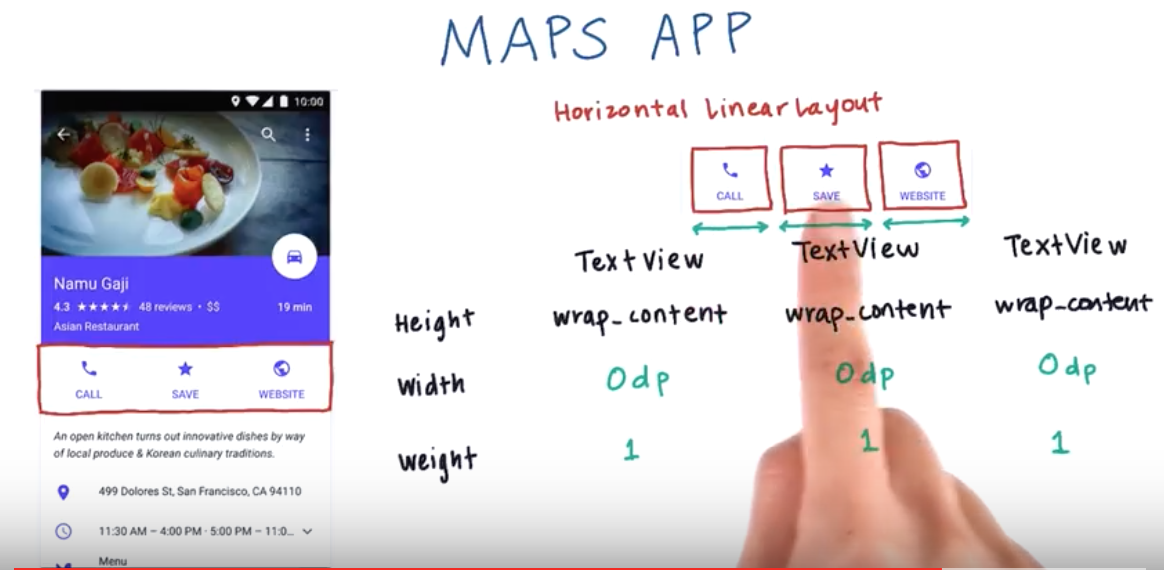 MAPS APP
10:00
Namu Gaji
4.3 48 reviews • $$ 19 min
Asian Restaurant
CALL SAVE WEBSITE
An open kitchen turns out innovative dishes by way
of local produce & Korean culinary traditions.
499 Dolores St, San Francisco, CA 94110
11:30 AM – 4:00 PM · 5:00 PM – 11:0...
Menu
Horizontal Linear Layout
CALL SAVE WEBSITE
TextView TextView TextView
Height wrap_content wrap_content wrap_content
Width 0dp 0dp 0dp
Weight 1 1 1